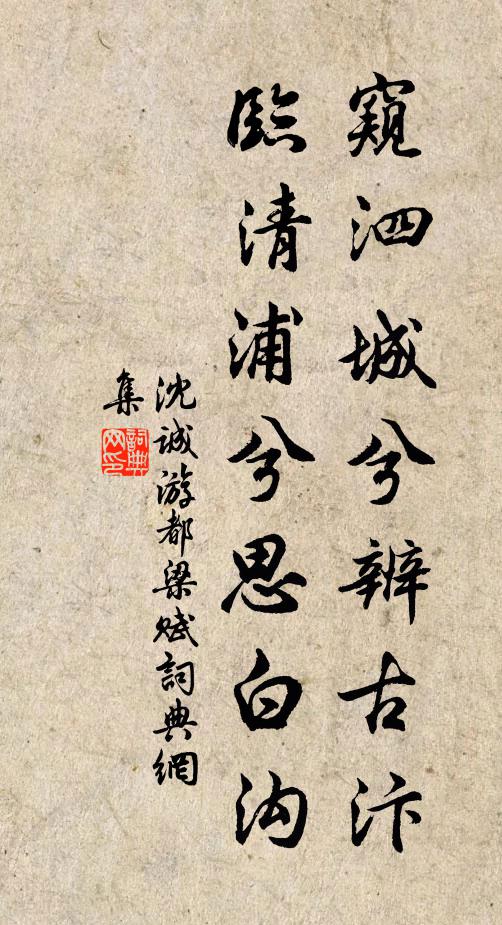 窺泗城兮辨古汴
臨清浦兮思白沟
沈诚游都梁赋詞典網
集
詞典
网印